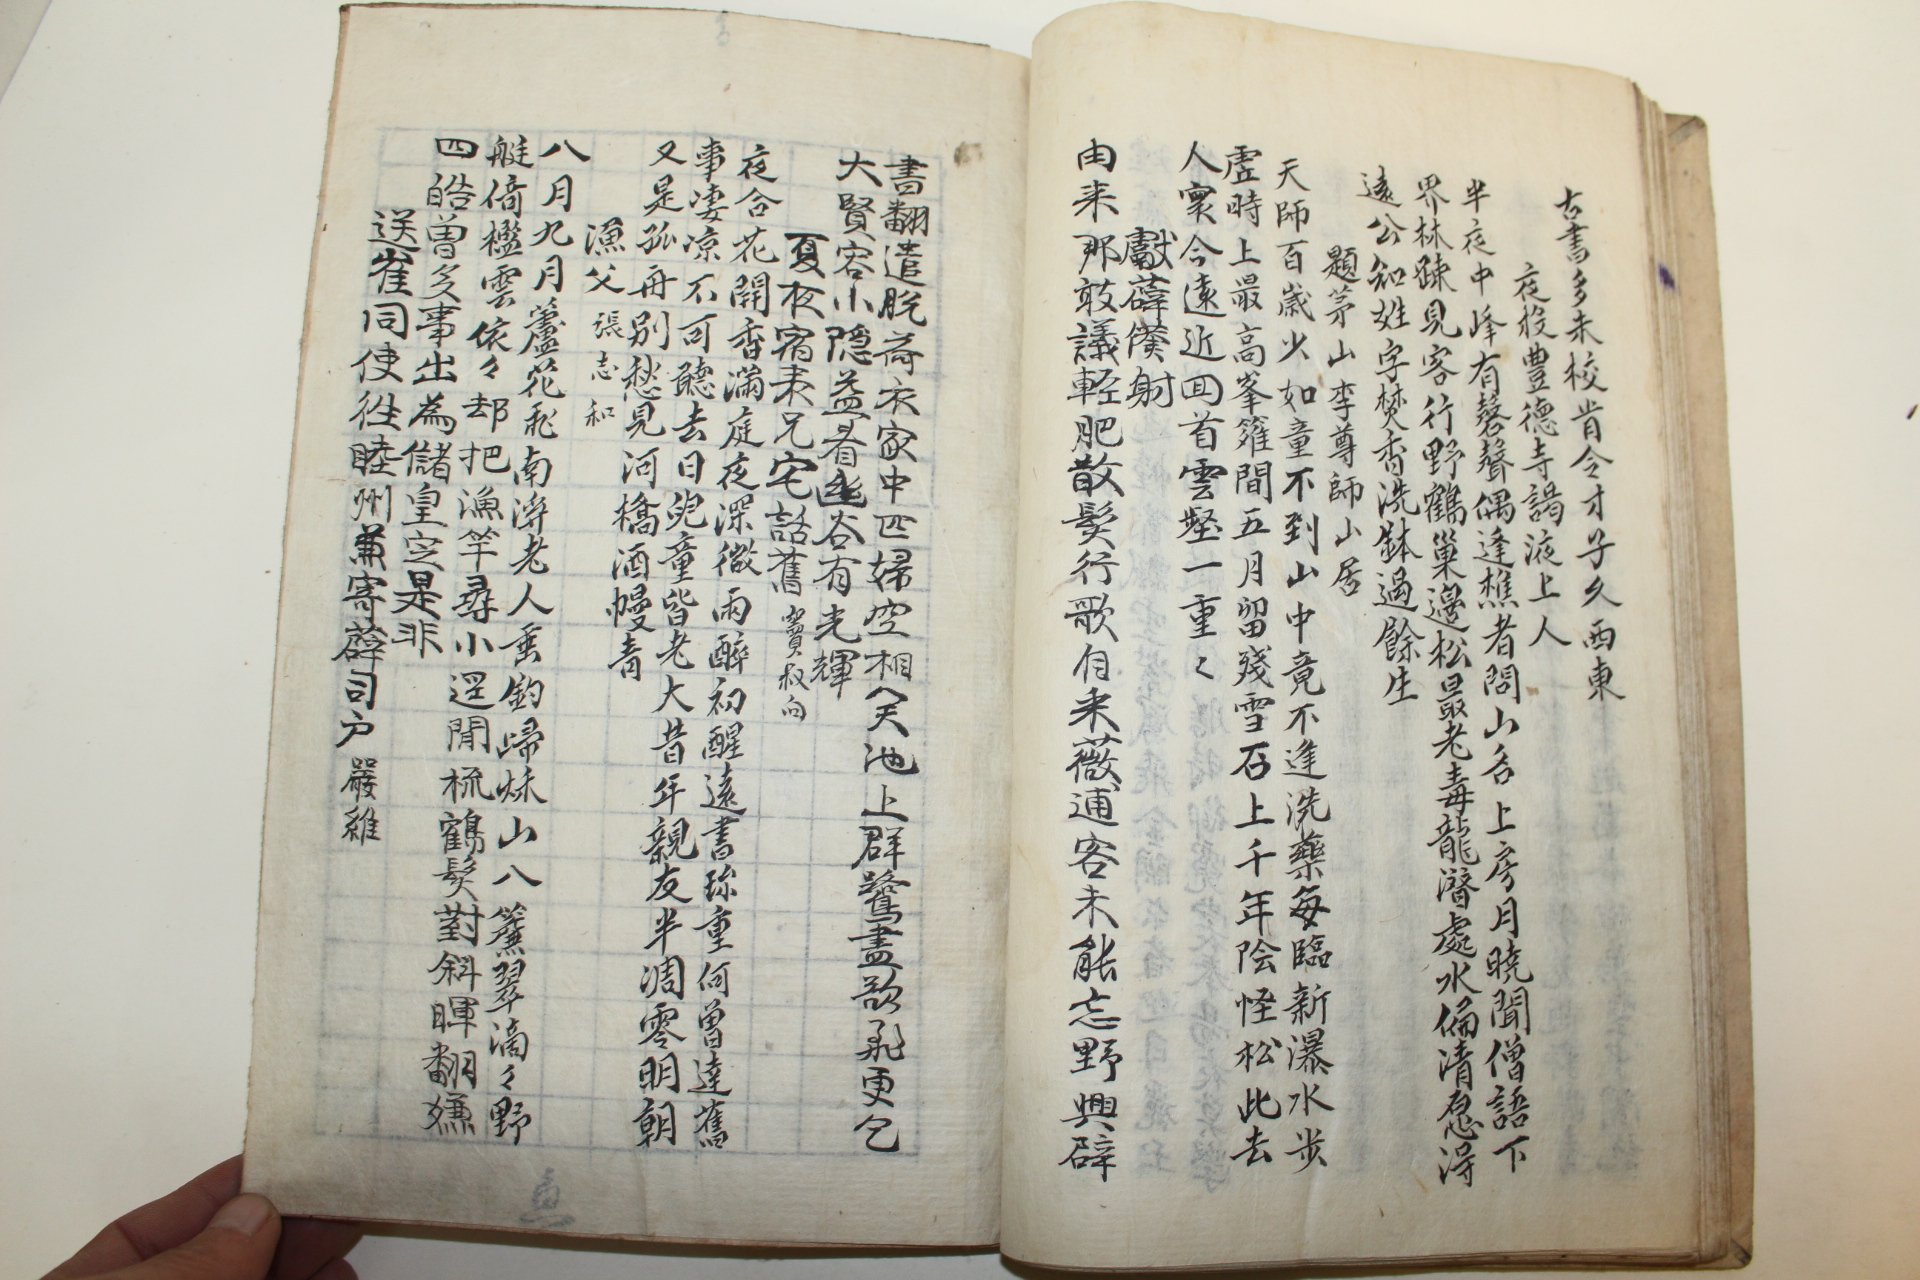 古書多未校肯令才子久西東
夜投豊德寺謁液上人
半夜中峰有磬聲偶逢樵者問山名上房月曉聞僧語下
界林踈見客行野鶴巢邊松最老毒龍潛處水偏清愿得
遠公知姓字焚香洗鉢過餘生
題茅山李尊師山居
天師百歲少如童不到山中竟不逢洗藥每臨新瀑水步
虛時上最高峯籬間五月留殘雪石上千年陰怪松此去
人寰今遠近回首雲壑一重〻
獻薛僕射
由来那敢議輕肥散髮行歌自采薇逋客未能忘野興辟
書翻遣脫荷衣家中匹婦空相笑池上群鷺盡欲飛更乞
大賢容小隱益看幽谷有光輝
夏夜宿表兄宅話舊 竇叔向
夜合花開香滿庭夜深微雨醉初醒遠書珎重何曾達舊
事凄凉不可聽去日兒童皆老大昔年親友半凋零明朝
又是孤舟別愁見河橋酒幔青
漁父 張志和
八月九月蘆花飛南溪老人垂釣歸秋山入簾翠滴〻野
艇倚檻雲依〻却把漁竿尋小逕閒梳鶴髮對斜暉翻嫌
四皓曾多事出為儲皇定是非
送崔同使往睦州兼寄薛司户 嚴維